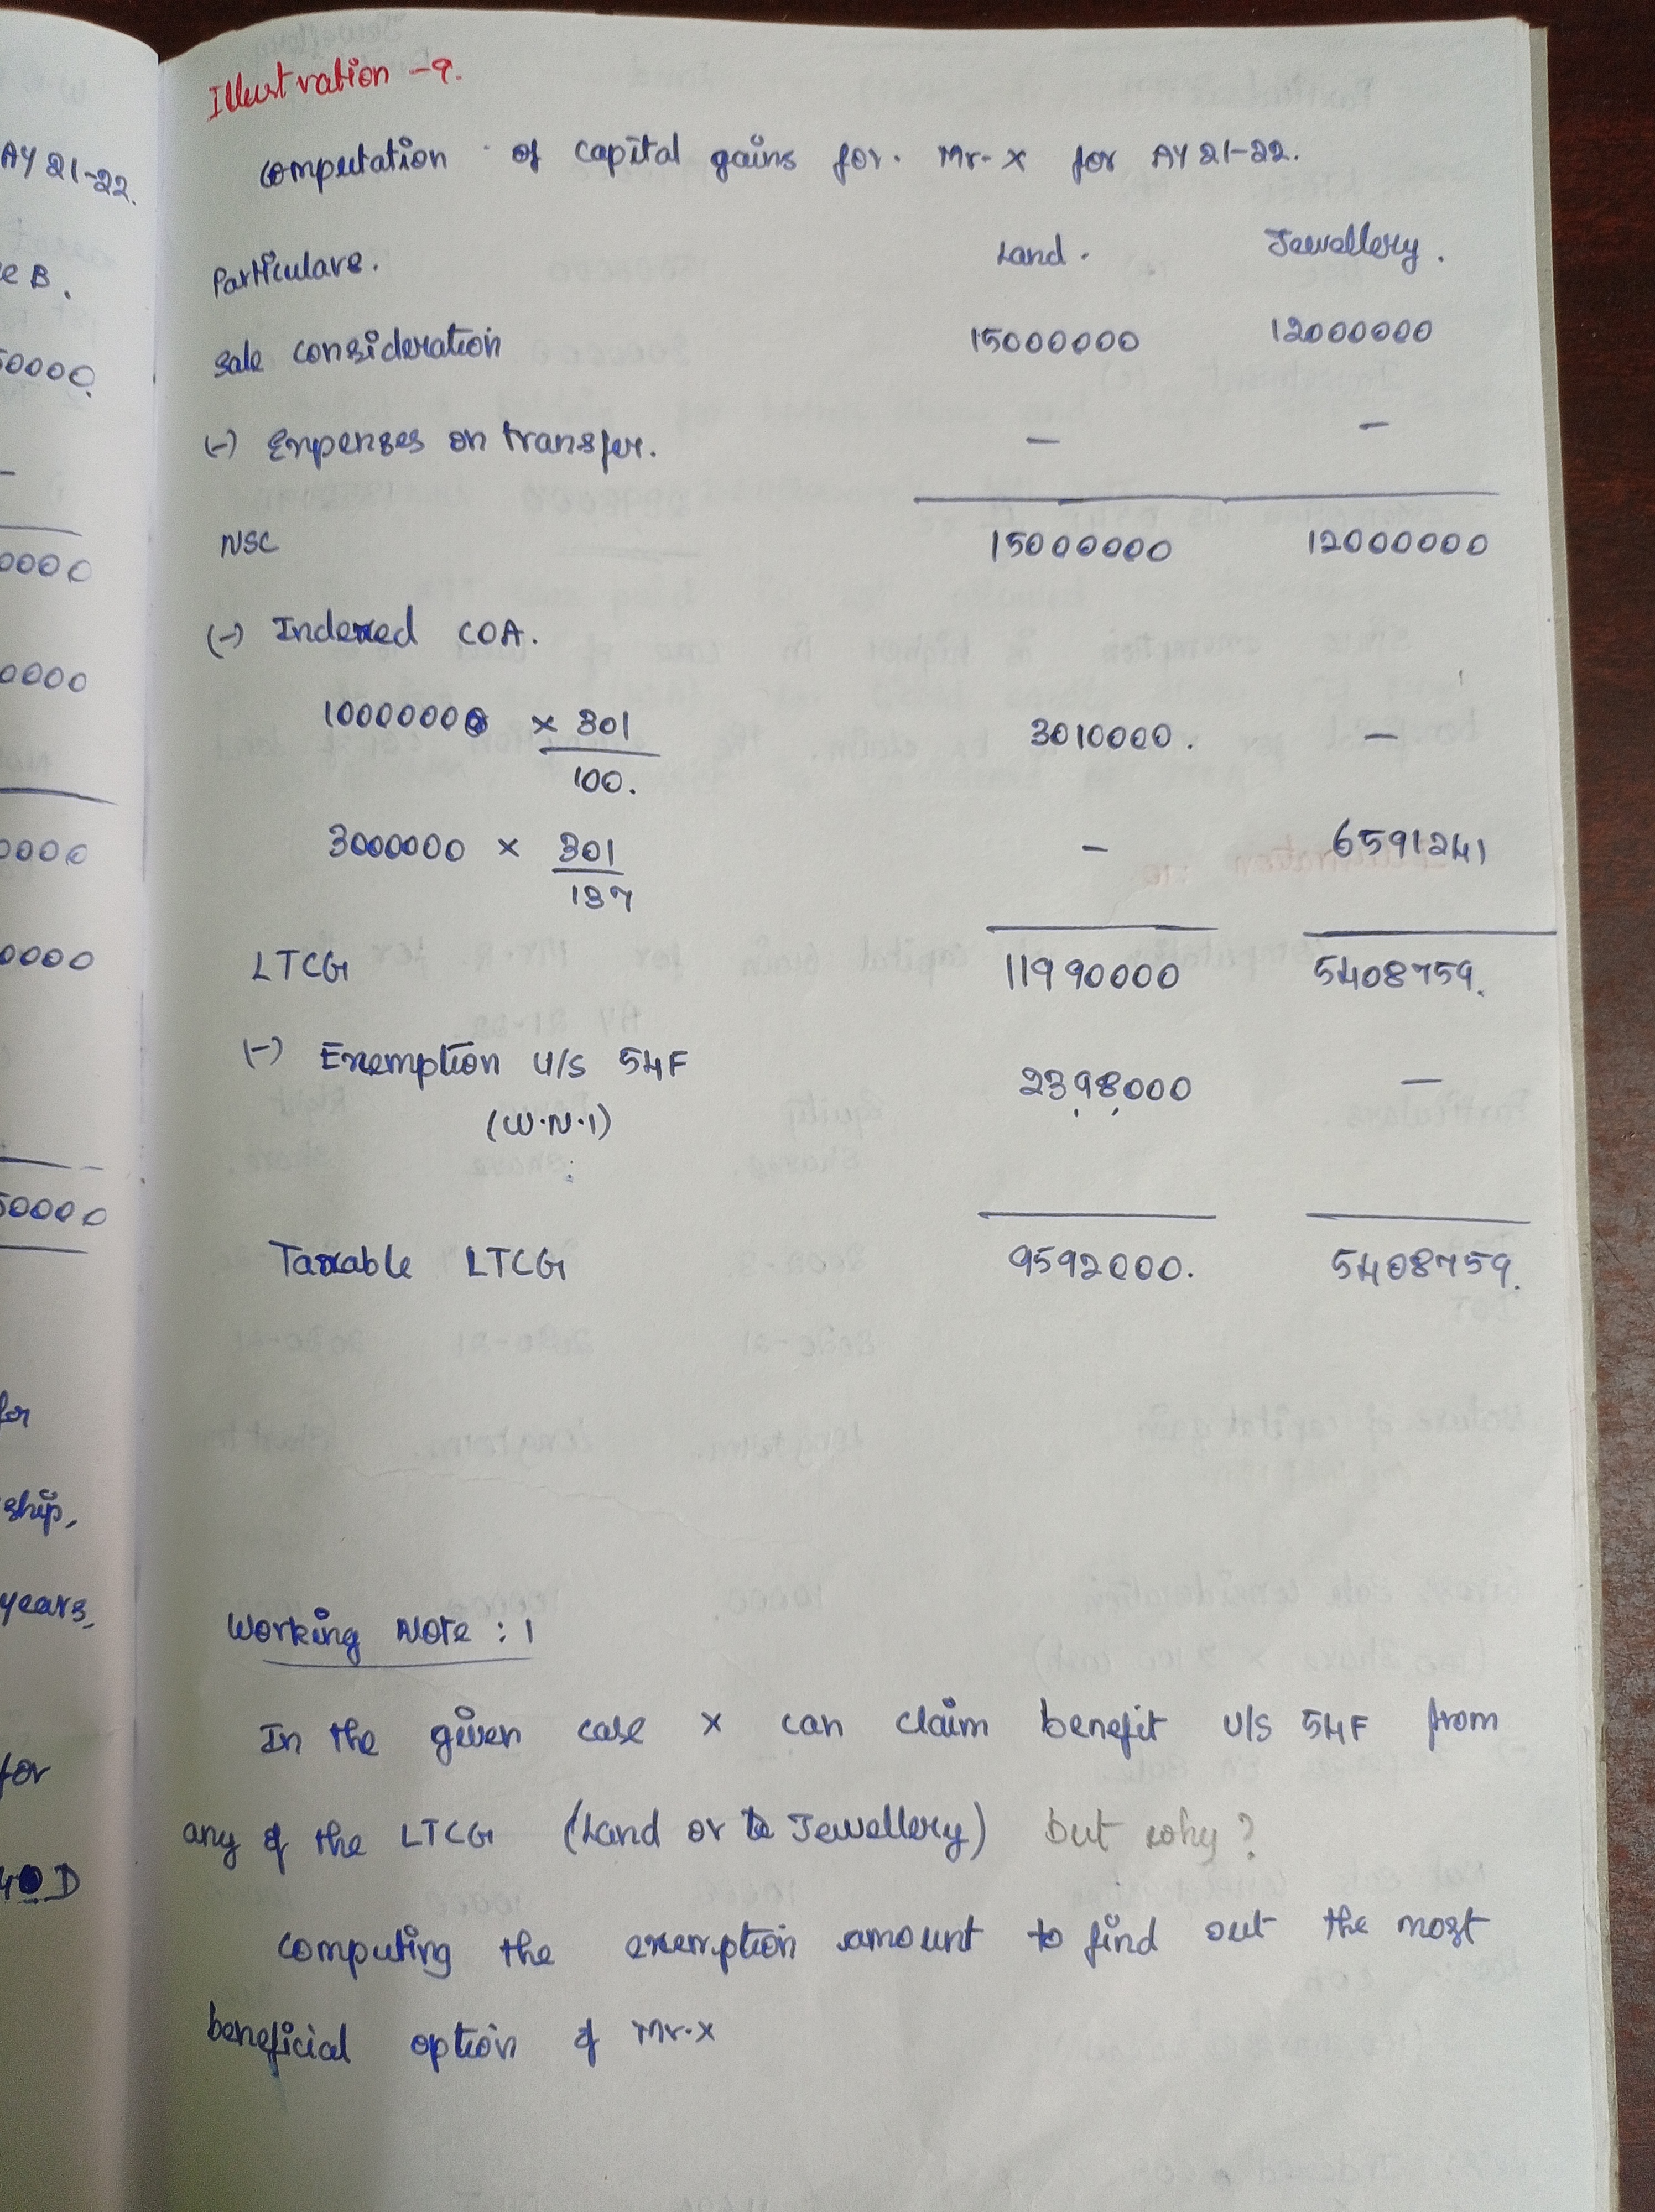 AY 21-22.
e B.
50000.
0000
0000
0000
0000
50000
for
ship,
years,
for
40D
Illustration -9.
computation of capital gains for. Mr-X for AY 21-22.
Particulars. Land. Jewellery.
Sale consideration 15000000 12000000
(-) Expenses on transfer. — —
NSC 15000000 12000000
(-) Indexed COA.
10000000 × 301 3010000. —
100.
3000000 × 301 — 6591241
137
LTCG 11990000 5408759.
(-) Exemption U/S 54F 2398000 —
(W.N.1)
Taxable LTCG 9592000. 5408759.
Working Note : 1
In the given case X can claim benefit U/S 54F from
any of the LTCG (Land or Jewellery) but why?
computing the exemption amount to find out the most
beneficial option of Mr.X